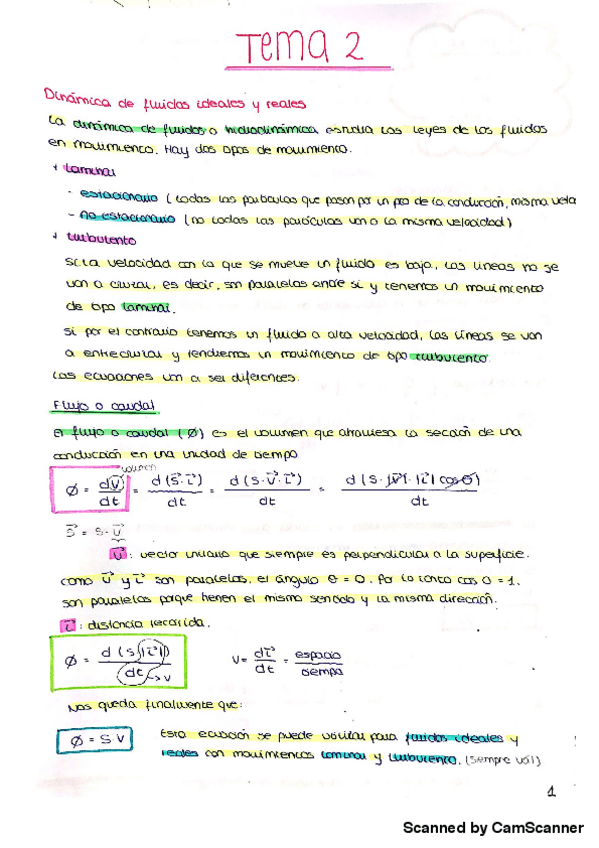 Tema 2
Dinámica de fluidos ideales y reales
La dinámica de fluidos o hidrodinámica estudia las leyes de los fluidos
en movimiento. Hay dos tipos de movimiento.
+ Laminar
- estacionario (todas las partículas que pasan por un pto de la conducción, misma vela
- no estacionario (no todas las partículas van a la misma velocidad)
+ turbulento
Si la velocidad con la que se mueve un fluido es baja, las líneas no se
van a cruzar, es decir, son paralelas entre sí y tenemos un movimiento
de tipo laminar.
Si por el contrario tenemos un fluido a alta velocidad, las líneas se van
a entrecruzar y tendremos un movimiento de tipo turbulento.
Las ecuaciones van a ser diferentes.
Flujo o caudal
El flujo o caudal (Ø) es el volumen que atraviesa la sección de una
conducción en una unidad de tiempo
volumen
Ø = dV/dt = d(S⃗·r⃗)/dt = d(S·u⃗·r⃗)/dt = d(S·|u⃗|·|r⃗| cosθ)/dt
S⃗ = S·u⃗
u⃗: vector unitario que siempre es perpendicular a la superficie.
como u⃗ y r⃗ son paralelas, el ángulo θ = 0. Por lo tanto cos 0 = 1.
son paralelas porque tienen el mismo sentido y la misma dirección.
r⃗: distancia recorrida.
Ø = d(S|r⃗|)/dt → v    v = dr⃗/dt = espacio/tiempo
Nos queda finalmente que:
Ø = S·V    Esta ecuación se puede utilizar para fluidos ideales y
reales con movimientos laminar y turbulento. (siempre útil)
1
Scanned by CamScanner